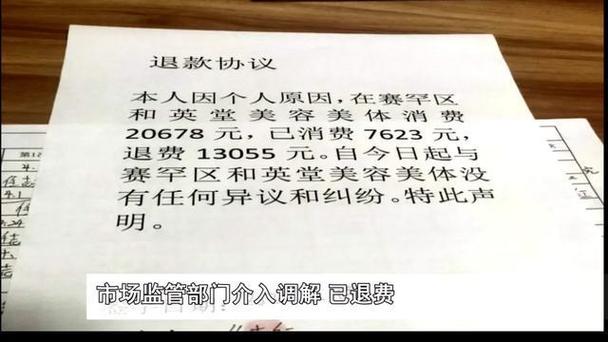 退款协议
本人因个人原因,在赛罕区
和英堂美容美体消费
20678元,已消费7623元,
退费13055元。自今日起与
赛罕区和英堂美容美体没
有任何异议和纠纷。特此声
明。
市场监管部门介入调解 已退费